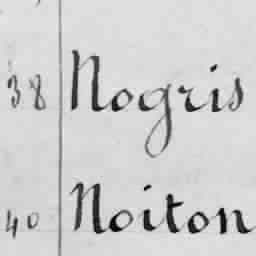 38 Nogris
40 Noiton